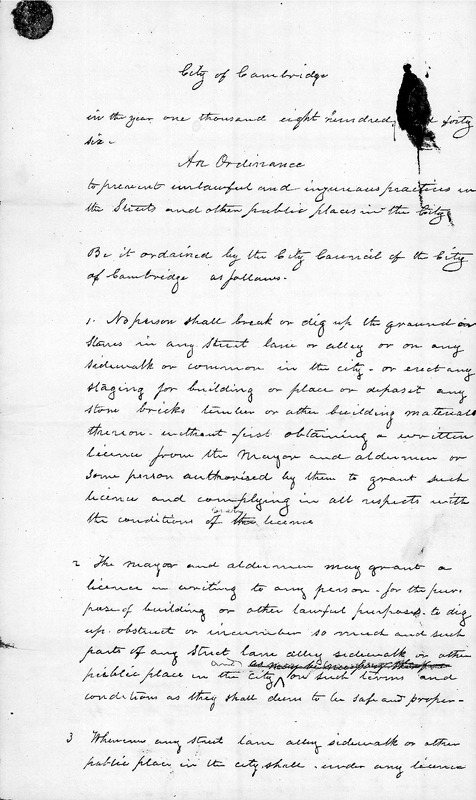 City of Cambridge
in the year one thousand eight hundred forty
six.
An Ordinance
to prevent unlawful and injureous practices in
the Streets and other public places in the City
Be it ordained by the City Council of the City
of Cambridge as follows.
1. No person shall break or dig up the ground or
stones in any street lane or alley or on any
sidewalk or common in the city. or erect any
staging for building or place or deposet any
stone bricks timber or other building materials
thereon. without first obtaining a written
licence from the Mayor and aldermen or
Some person authorised by them to grant such
licence and complying in all respects with
the conditions of the such licence
2 The mayor and aldermen may grant a
licence in writing to any person. for the pur-
pose of building or other lawful purposes. to dig
up. obstruct or incumber so much and such
parts of any street lane alley sidewalk or other
public place in the city and on such terms and
conditions as they shall deem to be safe and proper.
3 Whenever any street lane alley sidewalk or other
public place in the city shall. under any licence